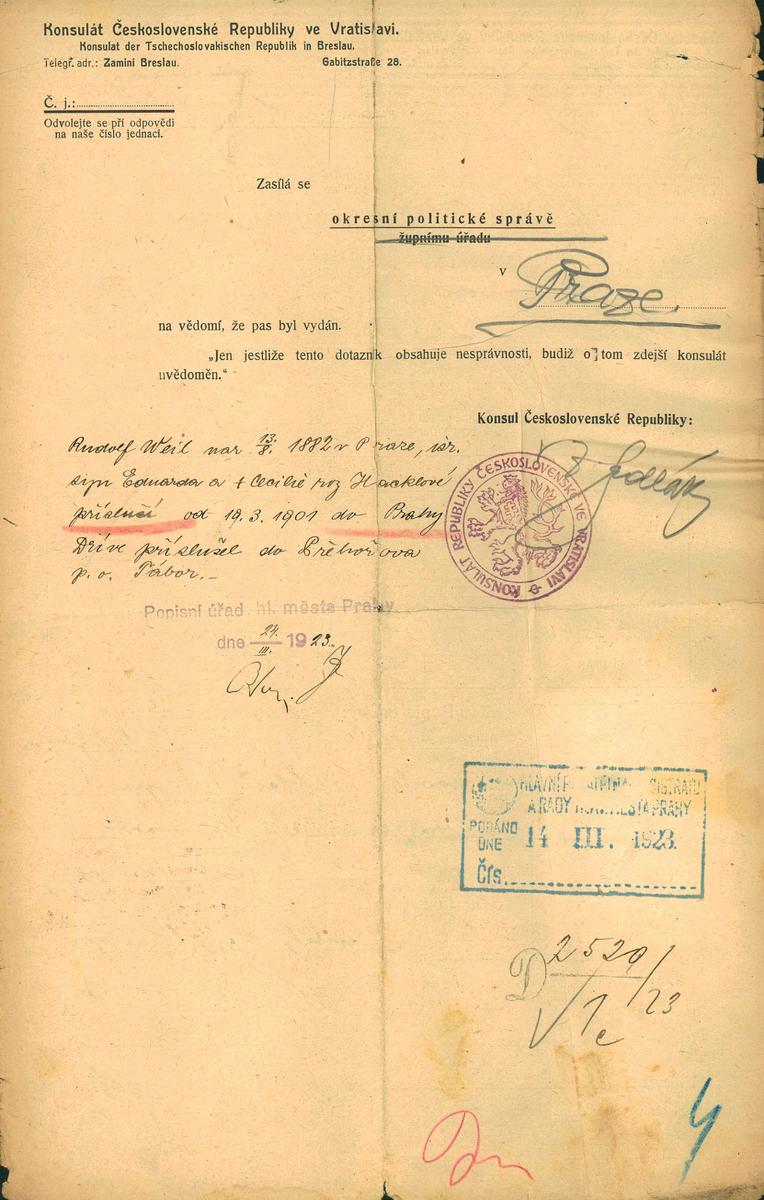 Konsulát Československé Republiky ve Vratislavi.
Konsulat der Tschechoslovakischen Republik in Breslau.
Telegr. adr.: Zamini Breslau. Gabitzstraße 28.
Č. j.:
Odvolejte se při odpovědi
na naše číslo jednací.
Zasílá se
okresní politické správě
župnímu úřadu
v Praze.
na vědomí, že pas byl vydán.
„Jen jestliže tento dotazník obsahuje nesprávnosti, budiž o tom zdejší konsulát
uvědoměn.“
Konsul Československé Republiky:
Rudolf Weil nar 13/8. 1882 v Praze, isr.
syn Eduarda a † Cecilie roz Hacklové
přísluší od 19.3.1901 do Prahy
Dříve příslušel do Přehořova
p. o. Tábor.-
KONSULÁT REPUBLIKY ČESKOSLOVENSKÉ VE VRATISLAVI
Popisní úřad hl. města Prahy
dne 24/III. 1923.
HLAVNÍ
A RADY HLAV. MĚSTA PRAHY
PODÁNO
DNE 14 III. 1923.
Čís.
D 2520/23
1c